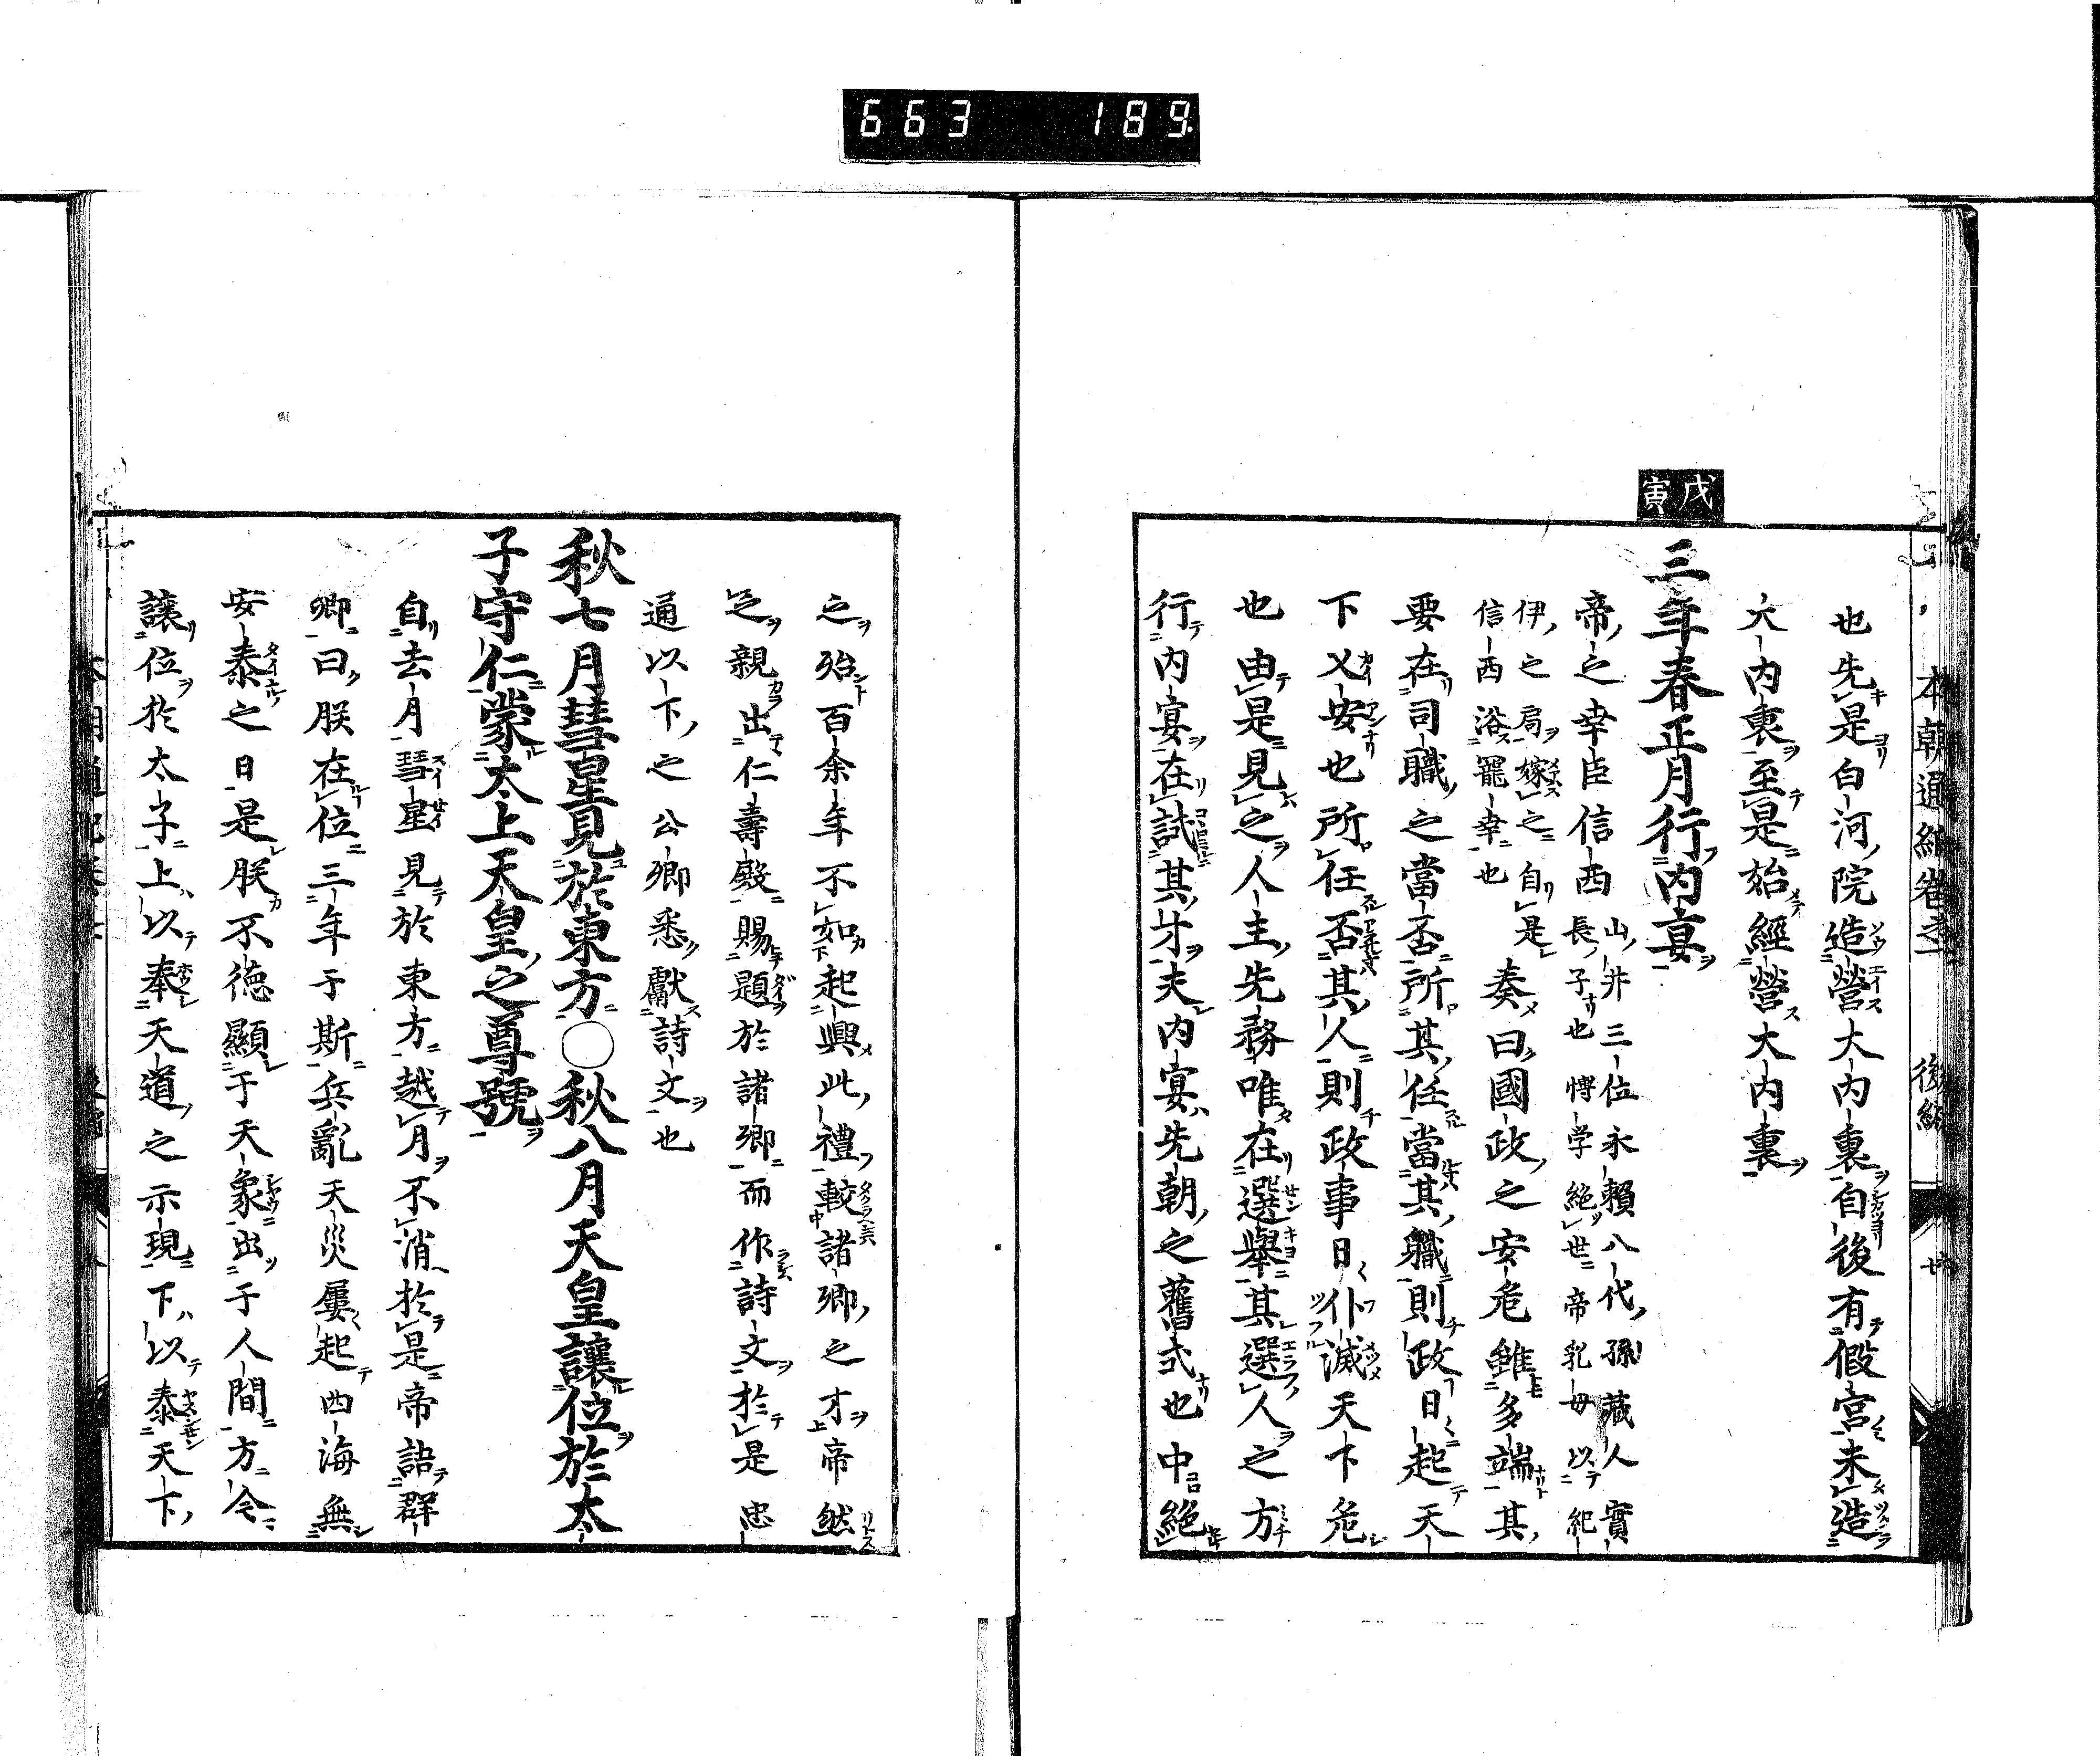 663 189
本朝通紀卷之 後編
戊寅
也先是白河院造營大内裏自後有假宮未造
大内裏至是始經營大内裏
三年春正月行内宴
帝之幸臣信西山井三位永賴八代孫藏人實
長子也博学絶世帝乳母以紀
伊之局嫁之自是
信西浴寵幸也奏曰國政之安危雖多端其
要在司職之當否所其任當其職則政日起天
下乂安也所任否其人則政事日仆滅天下危
也由是見之人主先務唯在選舉其選人之方
行内宴在試其才夫内宴先朝之舊式也中絶
之殆百余年不如起興此禮較諸卿之才帝然
之親出仁壽殿賜題於諸卿而作詩文於是忠
通以下之公卿悉獻詩文也
秋七月彗星見於東方○秋八月天皇讓位於太
子守仁蒙太上天皇之尊號
自去月彗星見於東方越月不消於是帝語群
卿曰朕在位三年于斯兵亂天災屢起四海無
安泰之日是朕不徳顯于天象出于人間方今
讓位於太子上以奉天道之示現下以泰天下